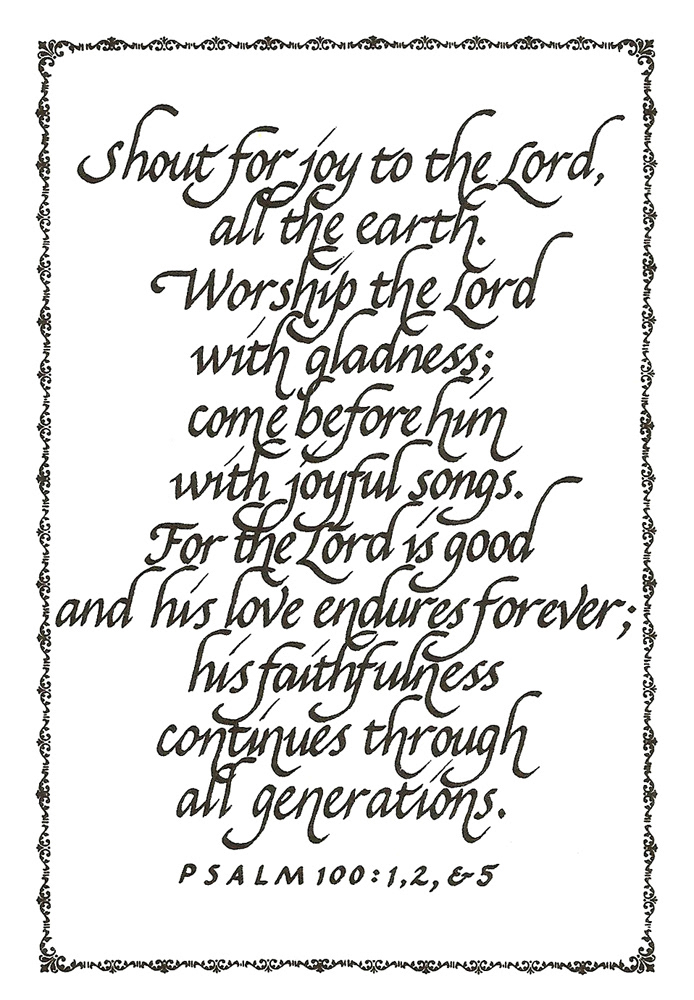 Shout for joy to the Lord,
all the earth.
Worship the Lord
with gladness;
come before him
with joyful songs.
For the Lord is good
and his love endures forever;
his faithfulness
continues through
all generations.
PSALM 100:1,2, & 5